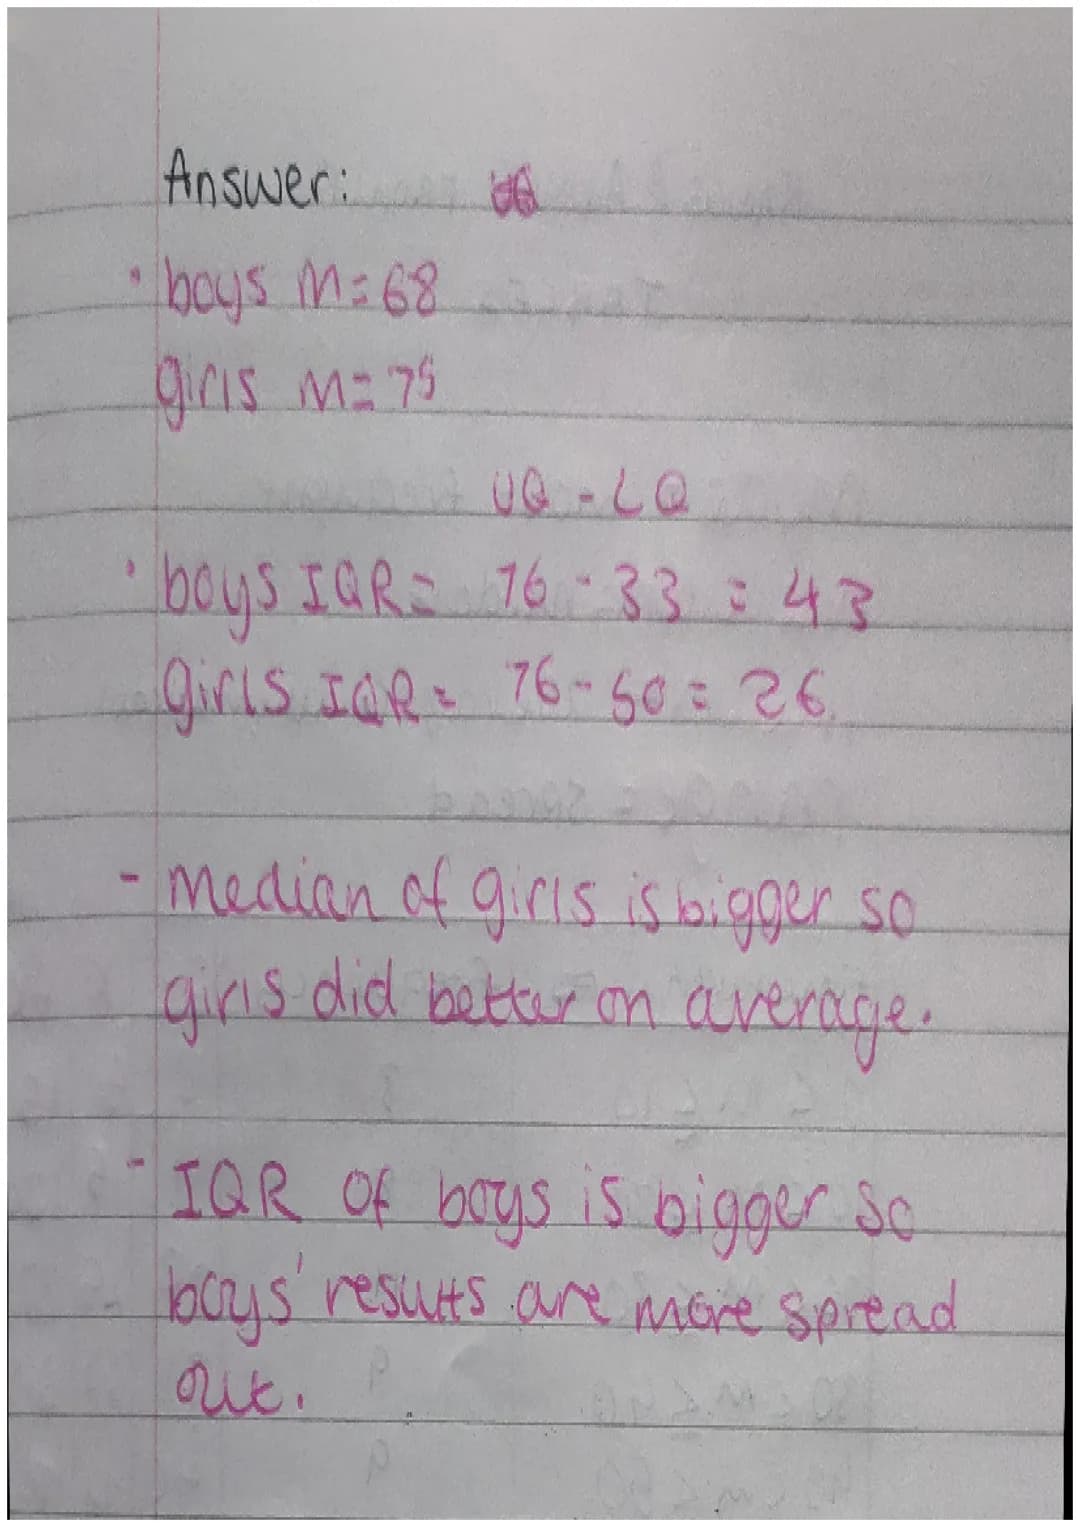 Answer:
• boys M = 68
girls M = 75
UQ - LQ
• boys IQR = 76 - 33 = 43
girls IQR = 76 - 50 = 26.
- Median of girls is bigger so
girls did better on average.
- IQR of boys is bigger so
boys' results are more spread
out.